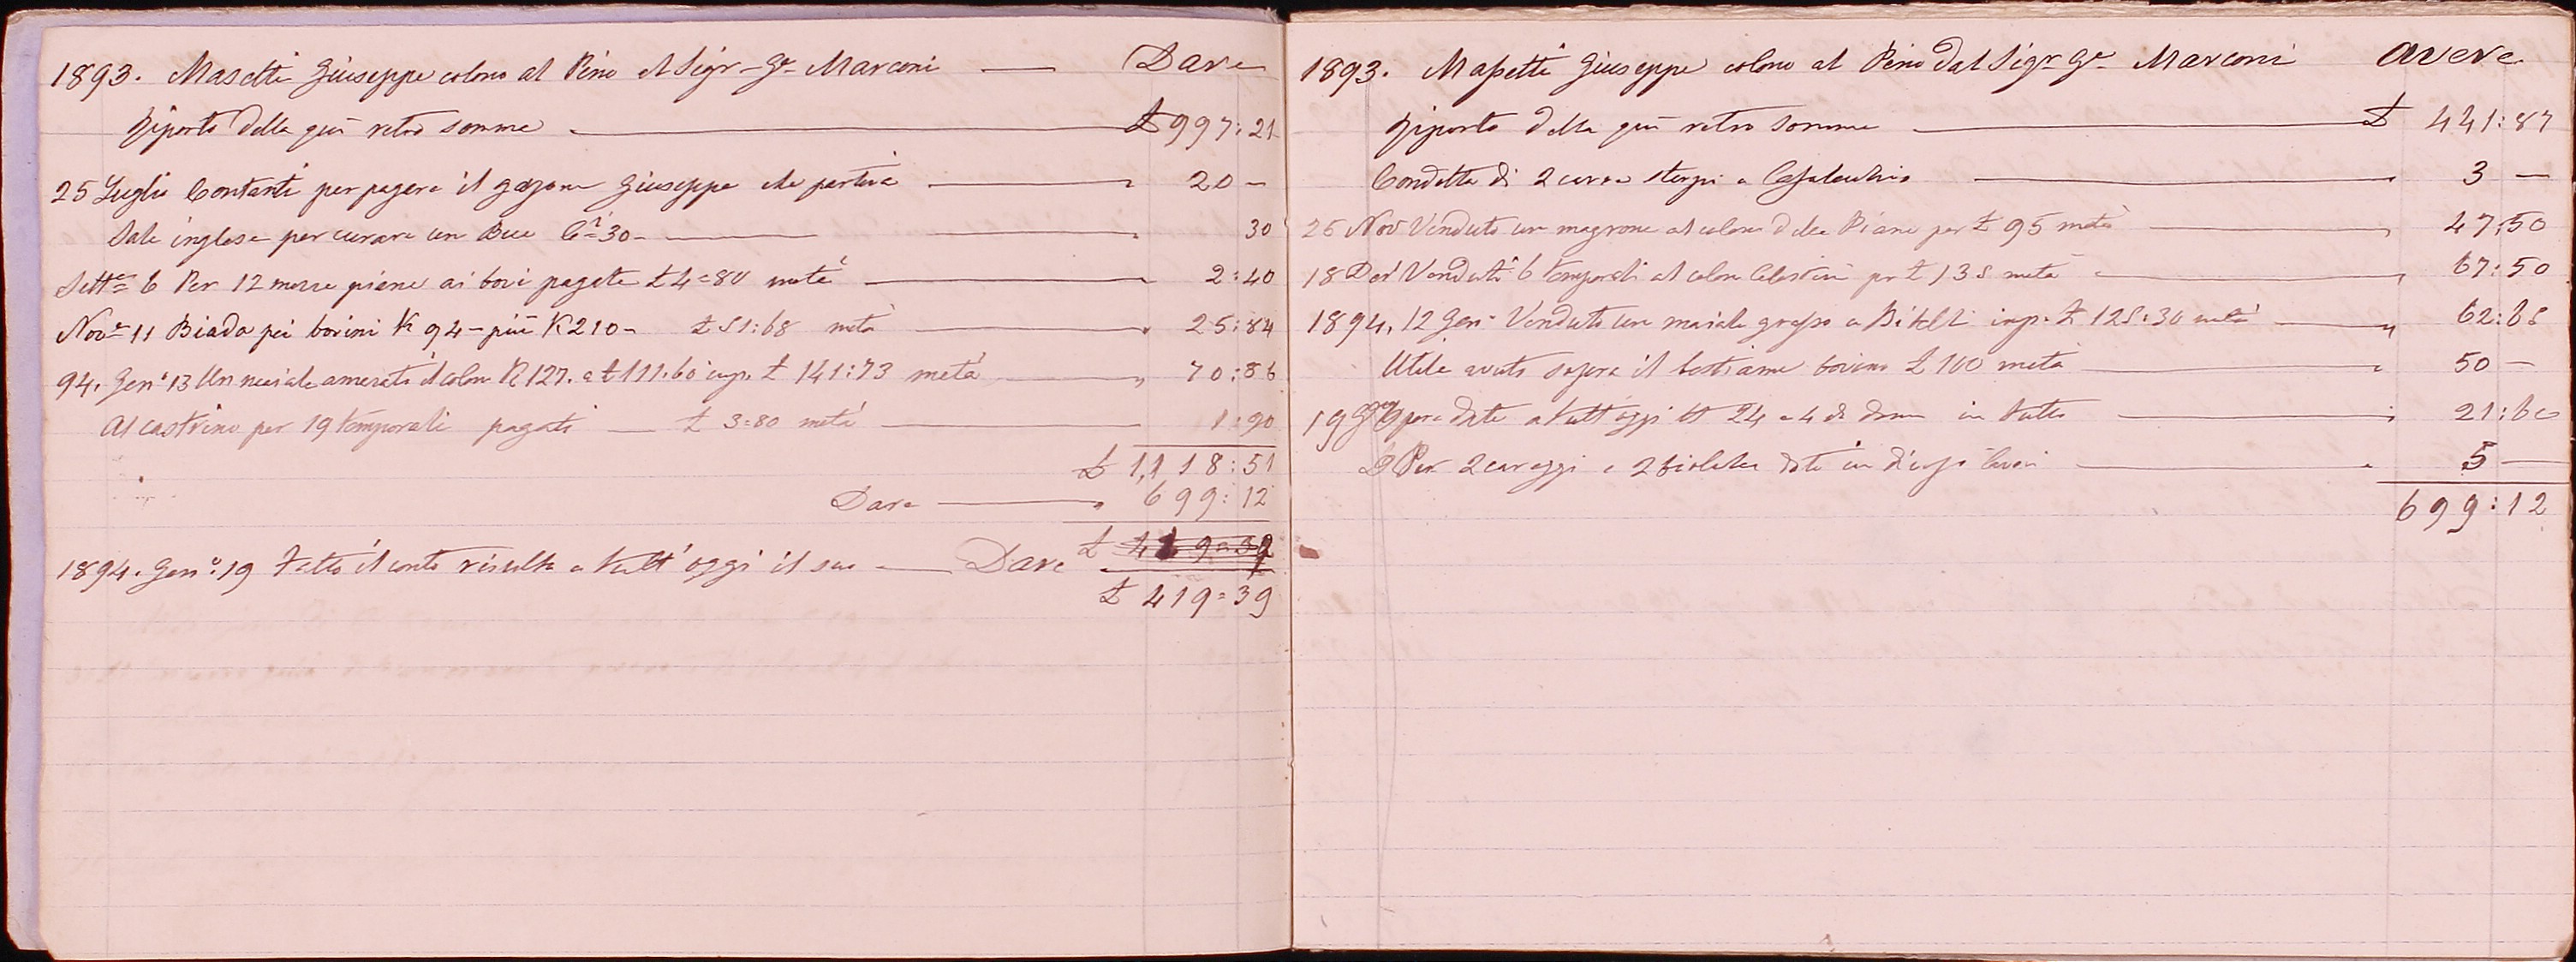 1893. Masetti Giuseppe colono al Pino del Sigr. Ge. Marconi — Dare
Riporto della quì retro somme — £ 997:21
25 Luglio Contanti per pagare il garzone Giuseppe che partiva — 20 –
Sale inglese per curare un Bue C.i 30 – — 30
Sett.e 6 Per 12 messe piane ai bovi pagate £ 4=80 metà — 2:40
Nov.e 11 Biada pei bovini K 94 – più K 210 – £ 51:68 metà — 25:84
94. Gen.o 13 Un maiale a il colono K 127. a £ 111.60 imp. £ 141:73 metà — 70:86
Al castrino per 19 temporali pagati — £ 3=80 metà — 1:90
£ 1,118:51
Dare — 699:12
£ 419=39
1894. Gen.o 19 Fatto il conto risulta a tutt'oggi il suo — Dare
£ 419=39
1893. Massetti Giuseppe colono al Pino dal Sigr. Ge. Marconi avere
Riporto della quì retro somme — £ 441:87
Condotta di 2 carra sterpi a Casalecchio — 3 —
25 Nov Venduto un magrone al colono della Piana per £ 95 metà — 47:50
18 Det Venduti 6 temporali al colono Celestini per £ 135 metà — 67:50
1894. 12 Gen. Venduto un maiale grasso a imp. £ 125:30 metà — 62:65
Utile avuto sopra il bestiame bovino £ 100 metà — 50 —
19 Opere date a tutt'oggi 24 a 4 da donna in tutto — 21:60
D Per 2 careggi e 2 date in diversi lavori — 5 —
699:12